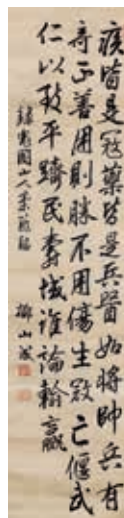 疾皆是寇藥皆是兵醫如將帥兵有
奇正善用則勝不用傷生亡偃武
仁以致平躋民壽域誰論輸贏
國山人
山